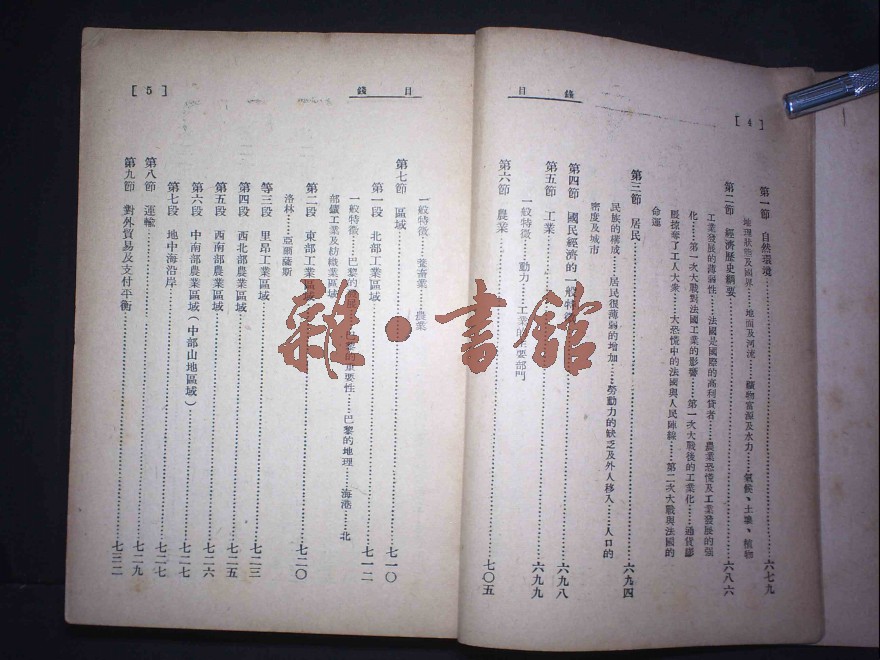 [4]
目錄
第一節 自然環境……六七九
地理狀態及國界……地面及河流……礦物富源及水力……氣候、土壤、植物
第二節 經濟歷史綱要……六八六
工業發展的薄弱性……法國是國際的高利貸者……農業恐慌及工業發展的強
化……第一次大戰對法國工業的影響……第一次大戰後的工業化……通貨膨
脹掠奪了工人大衆……大恐慌中的法國與人民陣線……第二次大戰與法國的
命運
第三節 居民……六九四
民族的構成……居民很薄弱的增加……勞動力的缺乏及外人移入……人口的
密度及城市
第四節 國民經濟的一般特徵……六九八
第五節 工業……六九九
一般特徵……動力……工業的主要部門
第六節 農業……七〇五
目錄
[5]
一般特徵……農業
第七節 區域……七一〇
第一段 北部工業區域……七一二
一般特徵……巴黎的發展……巴黎的重要性……巴黎的地理……海港……北
部鑛工業及紡織業區域
第二段 東部工業區域……七二〇
洛林……亞爾薩斯
等三段 里昂工業區域……七二三
第四段 西北部農業區域……七二五
第五段 西南部農業區域……七二六
第六段 中南部農業區域(中部山地區域)……七二七
第七段 地中海沿岸……七二七
第八節 運輸……七二九
第九節 對外貿易及支付平衡……七三二
雜·書館